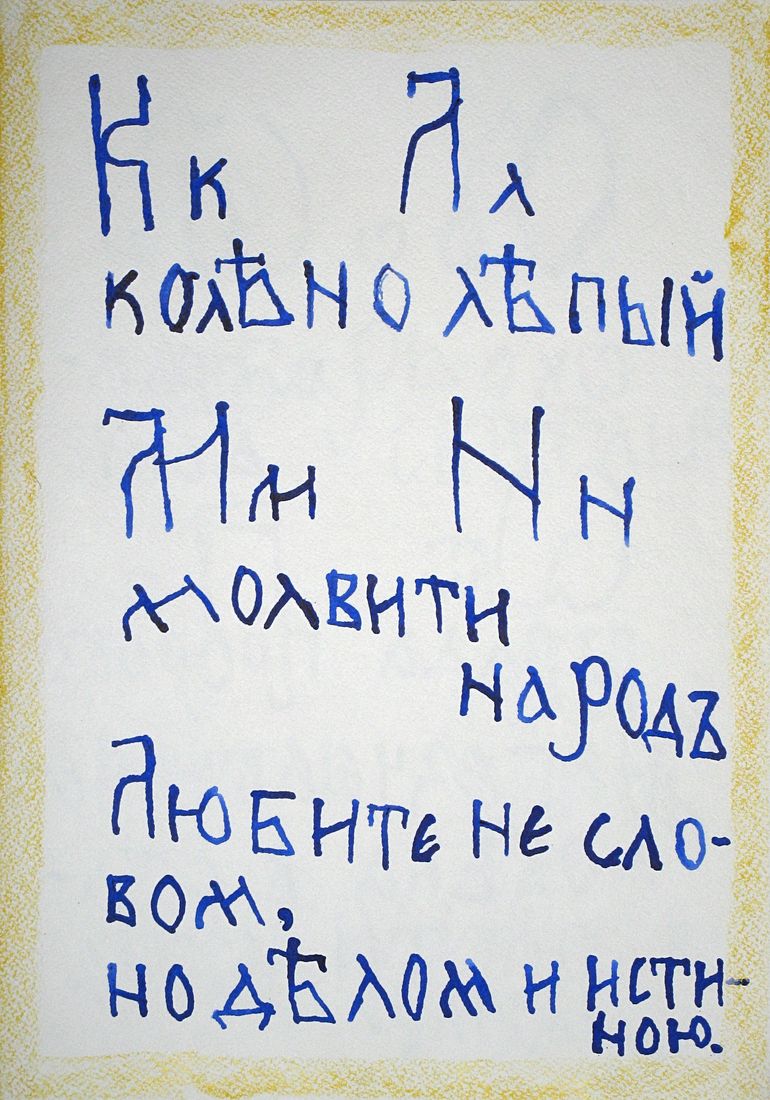 К к Л л
колѣно лѣпый
М м N н
молвити
народъ
Любите не сло-
вом,
но дѣлом и исти-
ною.